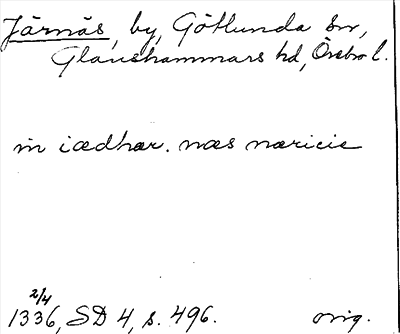 Järnäs, by, Götlunda sn,
Glanshammars hd, Örebro l.
in iædhær. næs næricie
2/4
1336, SD 4, s. 496. orig.